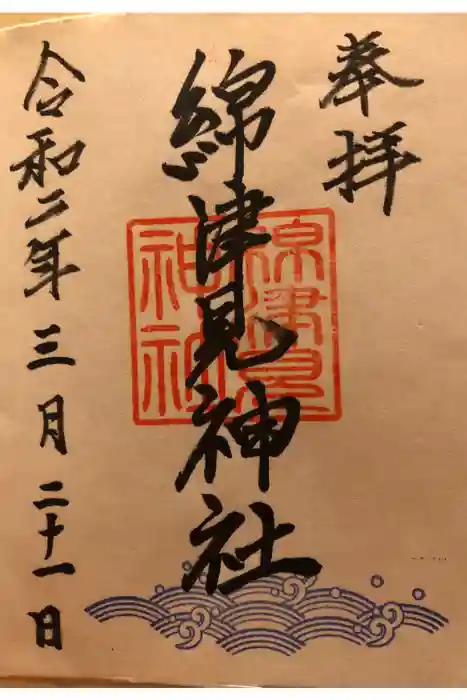 奉拝
綿津見神社
綿津見
神社
令和二年三月二十一日